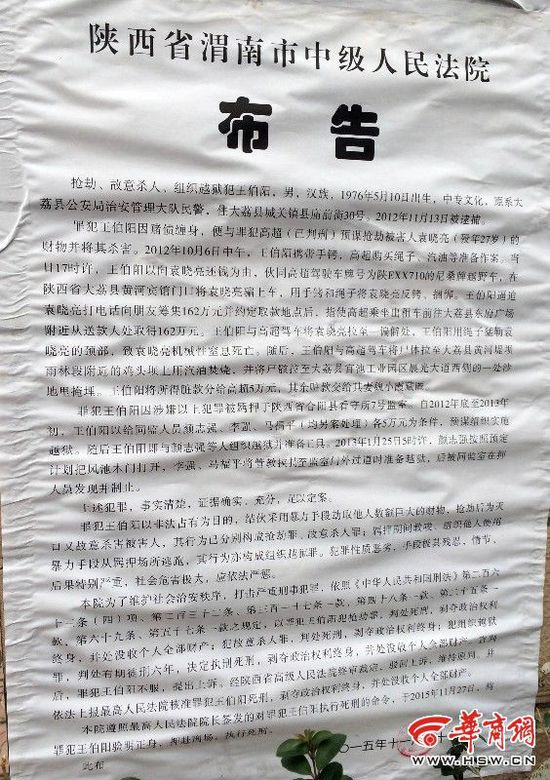 陕西省渭南市中级人民法院
布告
抢劫、故意杀人、组织越狱犯王伯阳，男，汉族，1976年5月10日出生，中专文化，原系大
荔县公安局治安管理大队民警，住大荔县城关镇县庙前街30号。2012年11月13日被逮捕。
罪犯王伯阳因赌债缠身，便与罪犯高超（已判刑）预谋抢劫被害人袁晓亮（殁年27岁）的
财物并将其杀害。2012年10月6日中午，王伯阳携带手铐，高超购买绳子、汽油等准备作案。当
日17时许，王伯阳以向袁晓亮还钱为由，伙同高超驾驶车牌号为陕EXX710的尼桑牌越野车，在
陕西省大荔县黄河宾馆门口将袁晓亮骗上车，用手铐和绳子将袁晓亮反铐、捆绑。王伯阳逼迫
袁晓亮打电话向朋友筹集162万元并约定取款地点后，指使高超乘坐出租车前往大荔县东府广场
附近从送款人处取得162万元。王伯阳与高超驾车将袁晓亮拉至一偏僻处，王伯阳用绳子猛勒袁
晓亮的颈部，致袁晓亮机械性窒息死亡。随后，王伯阳与高超驾车将尸体拉至大荔县黄河堤坝
雨林段附近的鸡头坝上用汽油焚烧，并将尸骸拉至大荔县官池工业园区晨光大道西侧的一处沙
地里掩埋。王伯阳将所得赃款分给高超5万元，其余赃款交给其妻
罪犯王伯阳因涉嫌以上犯罪被羁押于陕西省合阳县看守所7号监室。自2012年底至2013年
初，王伯阳以给同监人员颜志强、李强、马福平（均另案处理）各5万元为条件，预谋组织实施
越狱。随后王伯阳即与颜志强等人组织越狱并准备工具。2013年1月25日5时许，颜志强按照预定
计划把风池木门打开，李强、马福平将管教 至监室门外过道时准备越狱，后被同监室在押
人员发现并制止。
上述犯罪，事实清楚，证据确实、充分，足以定案。
罪犯王伯阳以非法占有为目的，结伙采用暴力手段劫取他人数额巨大的财物，抢劫后为灭
口又故意杀害被害人，其行为已分别构成抢劫罪、故意杀人罪；羁押期间教唆、组织他人使用
暴力手段从羁押场所逃跑，其行为亦构成组织越狱罪。犯罪性质恶劣，手段极其残忍，情节、
后果特别严重，社会危害极大，应依法严惩。
本院为了维护社会治安秩序，打击严重刑事犯罪，依照《中华人民共和国刑法》第二百六
十三条（四）项、第二百三十二条、第三百一十七条一款、第四十八条一款、第二十五条一
款、第六十九条、第五十七条一款之规定，以罪犯王伯阳犯抢劫罪，判处死刑，剥夺政治权利
终身，并处没收个人全部财产；犯故意杀人罪，判处死刑，剥夺政治权利终身；犯组织越狱
罪，判处有期徒刑六年，决定执行死刑，剥夺政治权利终身，并处没收个人全部财产。宣判
后，罪犯王伯阳不服，提出上诉。经陕西省高级人民法院终审裁定，驳回上诉，维持原判，并
依法上报最高人民法院核准罪犯王伯阳死刑，剥夺政治权利终身，并处没收个人全部财产。
本院遵照最高人民法院院长签发的对罪犯王伯阳执行死刑的命令，于2015年11月27日，将
罪犯王伯阳验明正身，押赴刑场，执行死刑。
此布
一五年十一
华商网
WWW.HSW.CN